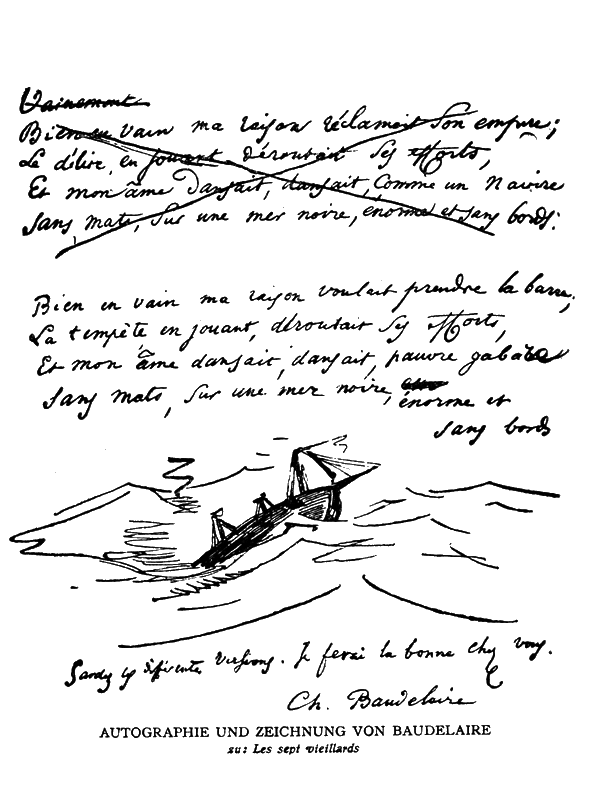 Vainement
Bien en vain ma raison réclamait son empire;
Le délire, en jouant, déroutait ses efforts,
Et mon âme dansait, dansait, comme un navire
Sans mats, sur une mer noire, énorme et sans bords.
Bien en vain ma raison voulait prendre la barre;
La tempête en jouant, déroutait ses efforts,
Et mon âme dansait, dansait, pauvre gabare
Sans mats, sur une mer noire,
énorme et
sans bords
Gardez les différentes versions. Je ferai la bonne chez vous.
Ch. Baudelaire
AUTOGRAPHIE UND ZEICHNUNG VON BAUDELAIRE
zu: Les sept vieillards